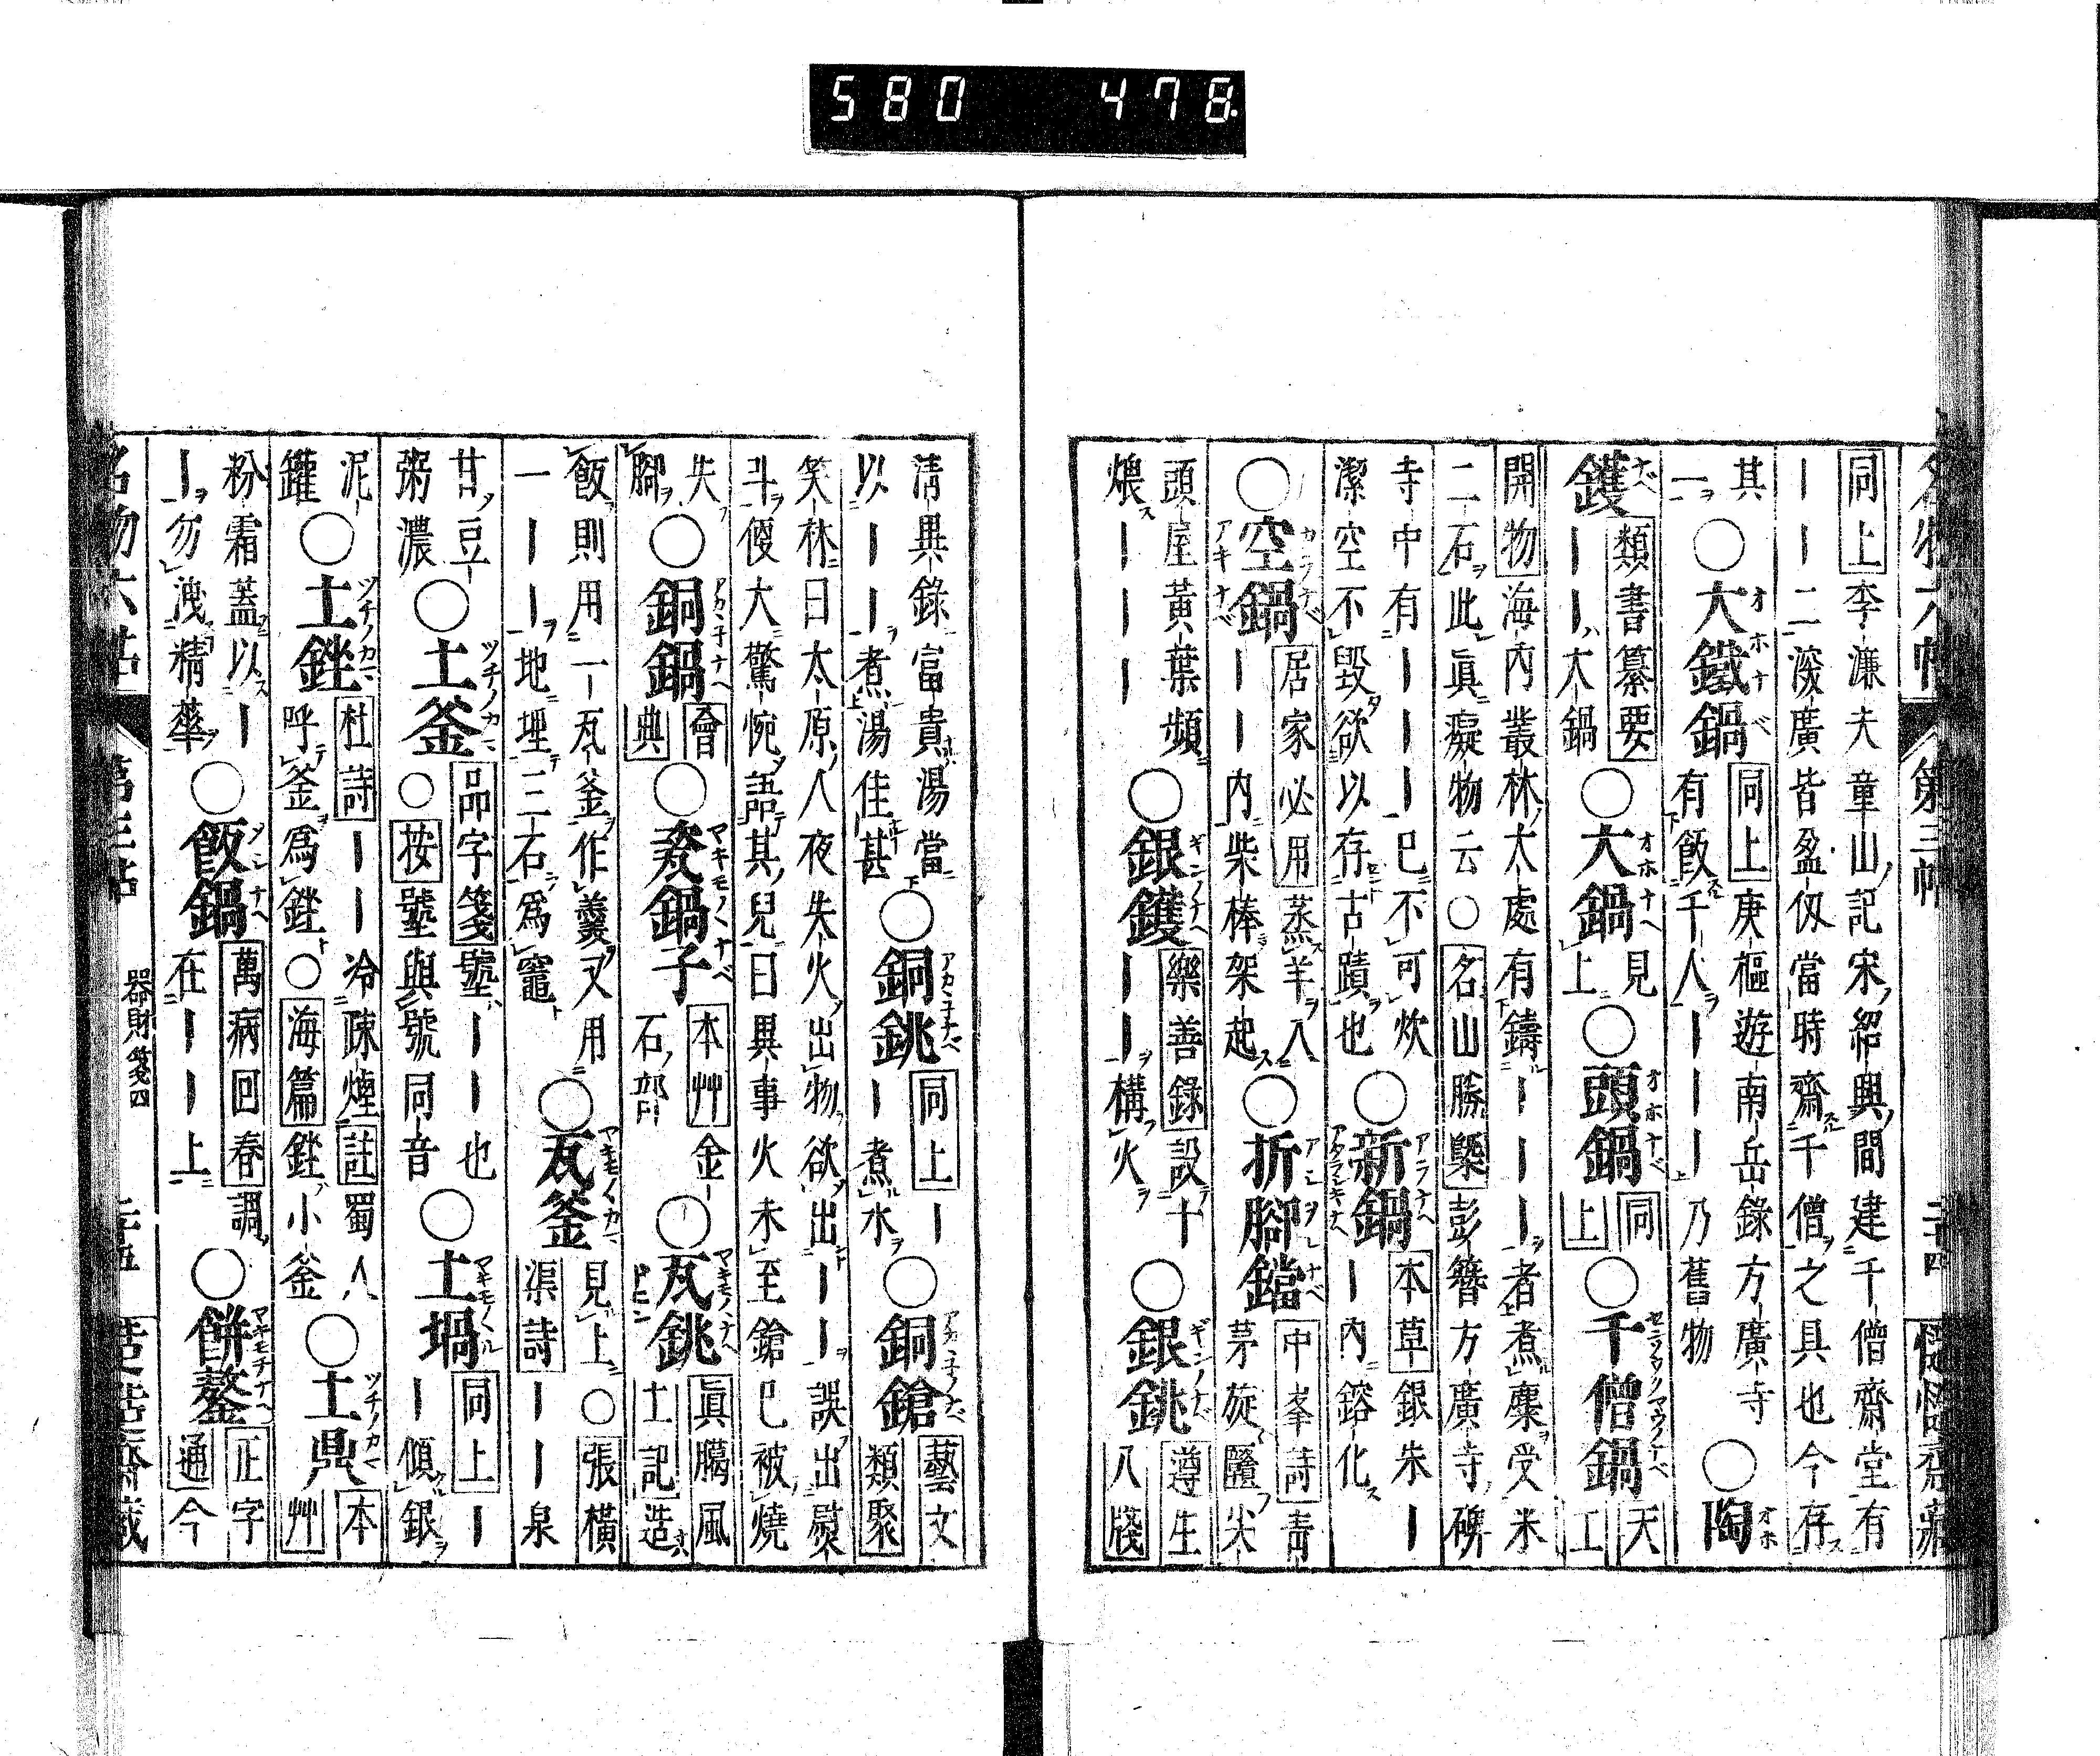 580 478
名物六帖 第三帖 二十四
同上李濂夫童山記宋紹興間建千僧齋堂有
ーー二溲廣皆盈仭當時齋千僧之具也今存
其
一○大鐵鍋 同上庚樞遊南岳錄方廣寺
有飯千人ーーー乃舊物○陶
鑊 類書纂要
ーー大鍋○大鍋 見上○頭鍋 同上○千僧鍋 天工
開物海内叢林大處有鑄ーーー者煮麋受米
二石此眞癡物云○名山勝槩彭簪方廣寺碑
寺中有ーーー已不可炊
潔空不毀欲以存古蹟也○新鍋 本草銀朱ー
ー内鎔化
○空鍋 居家必用蒸羊入
ーー内柴棒架起○折腳鐺 中峯詩青
茅旋尖
頭屋黃葉頻
煨ーーー○銀鑊 樂善錄設十
ーー構火○銀銚 遵生
八牋
清異錄富貴湯當
以ーー煮湯佳甚○銅銚 同上ー
ー煮水○銅鎗 藝文
類聚
笑林曰太原人夜失火出物欲出ーー誤出熨
斗便大驚惋語其兒曰異事火未至鎗已被燒
失
腳○銅鍋 會典○瓷鍋子 本艸金
石部○瓦銚 眞臘風
土記造
飯則用一瓦釜作羹又用
一ーー地埋三石爲竈○瓦釜 見上○張橫
渠詩ーー泉
甘豆
粥濃○土釜 品字箋ーー也
○按與號同音○土堝 同上ー
ー傾銀
泥
鑵○土銼 杜詩ーー冷疎煙註蜀人
呼釜爲銼○海篇銼小釜○土鼎 本
艸
粉霜蓋以ー
ー勿洩精華○飯鍋 萬病回春調
在ーー上○餅鏊 正字
通今
器財箋四